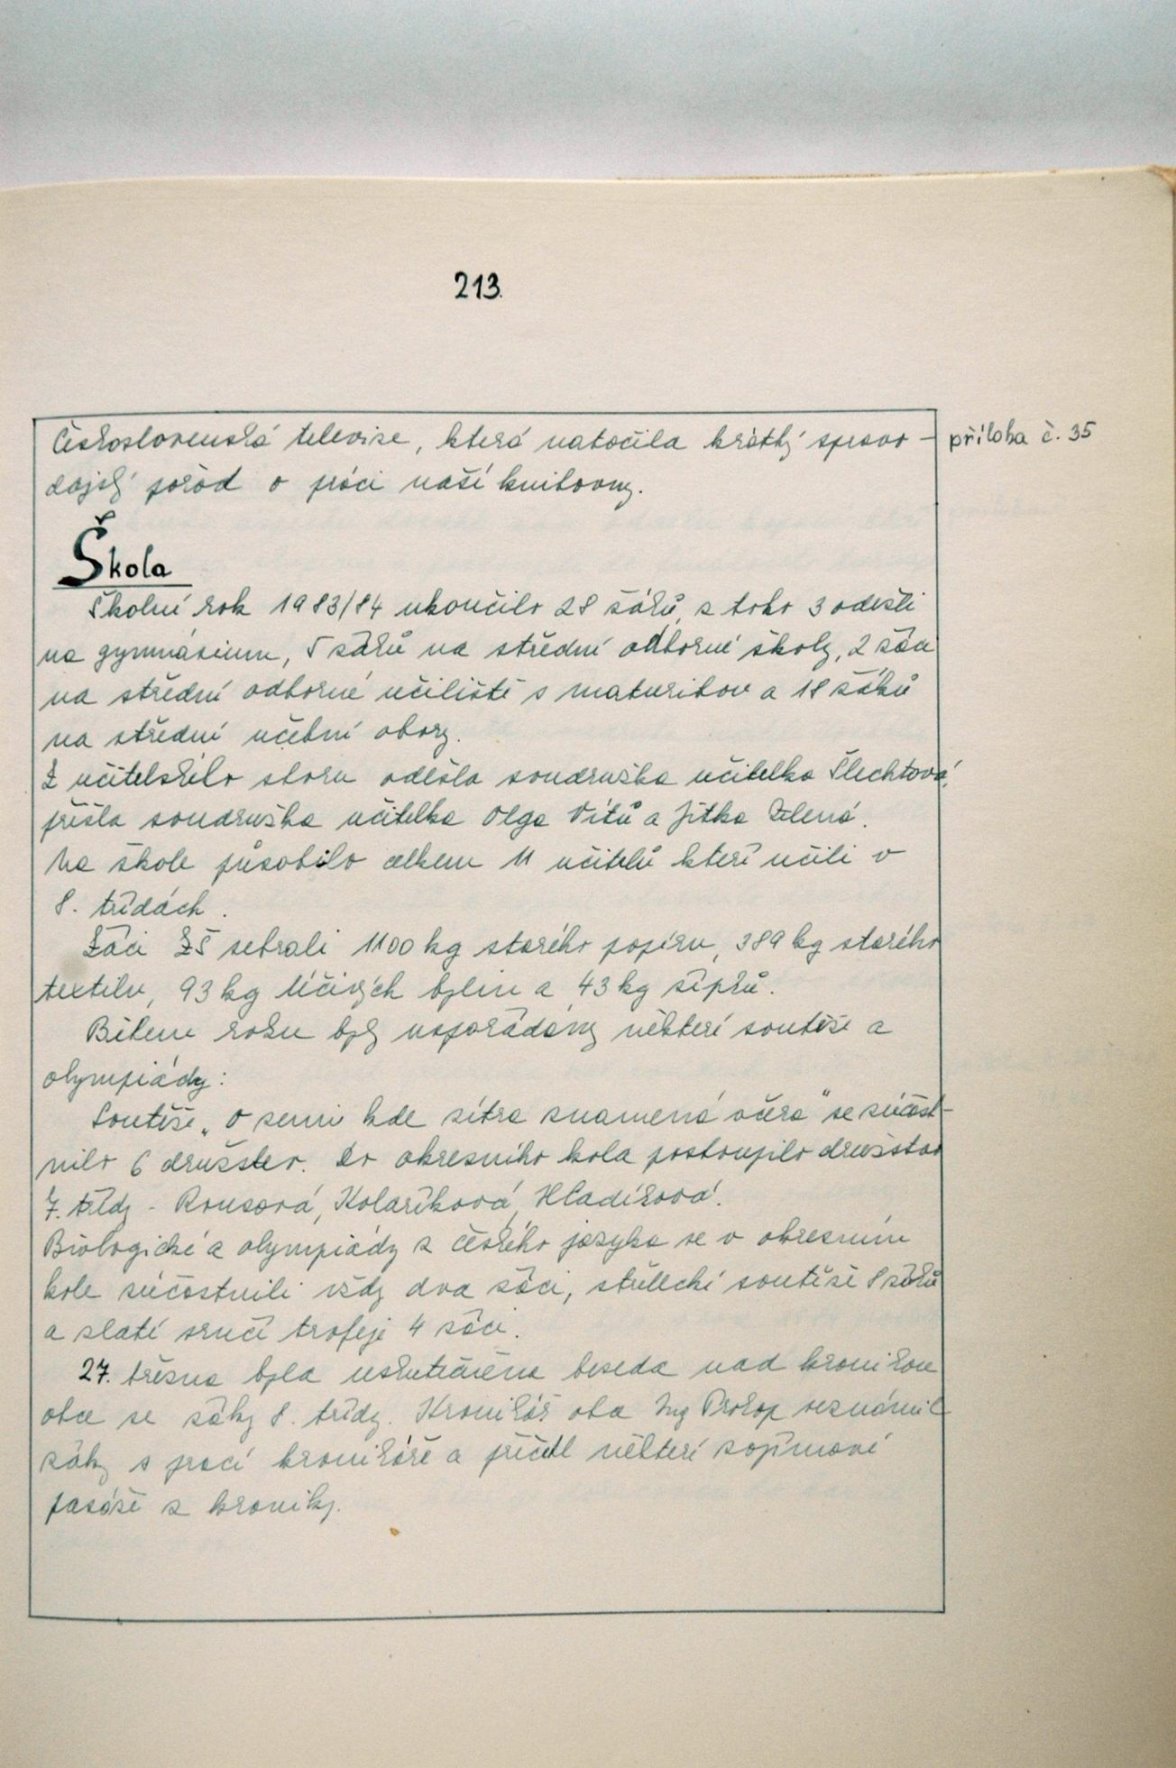 213.
Československá televise, která natočila krátký zpravo-
příloha č. 35
dajský pořad o práci naší knihovny.
Škola
Školní rok 1983/84 ukončilo 28 žáků, z toho 3 odešli
na gymnásium, 5 žáků na střední odborné školy, 2 žáci
na střední odborné učiliště s maturitou a 18 žáků
na střední učební obory.
Z učitelského sboru odešla soudružka učitelka Šlechtová,
přišla soudružka učitelka Olga Vítů a Jitka Zelená.
Na škole působilo celkem 11 učitelů kteří učili v
8. třídách.
Žáci ZŠ sebrali 1100 kg starého papíru, 389 kg starého
textilu, 93 kg léčivých bylin a 43 kg šípků.
Během roku byly uspořádány některé soutěže a
olympiády:
Soutěže „O zemi kde zítra znamená včera" se zúčast-
nilo 6 družstev. Do okresního kola postoupilo družstvo
7. třídy - Rousová, Kolaříková, Hladíková.
Biologické a olympiády z českého jazyka se v okresním
kole zúčastnili vždy dva žáci, střelecké soutěže 8 žáků
a zlaté srnčí trofeje 4 žáci.
27. března byla uskutečněna beseda nad kronikou
obce se žáky 8. třídy. Kronikář obce Ing Prokop seznámil
žáky s prací kronikáře a přečetl některé zajímavé
pasáže z kroniky.